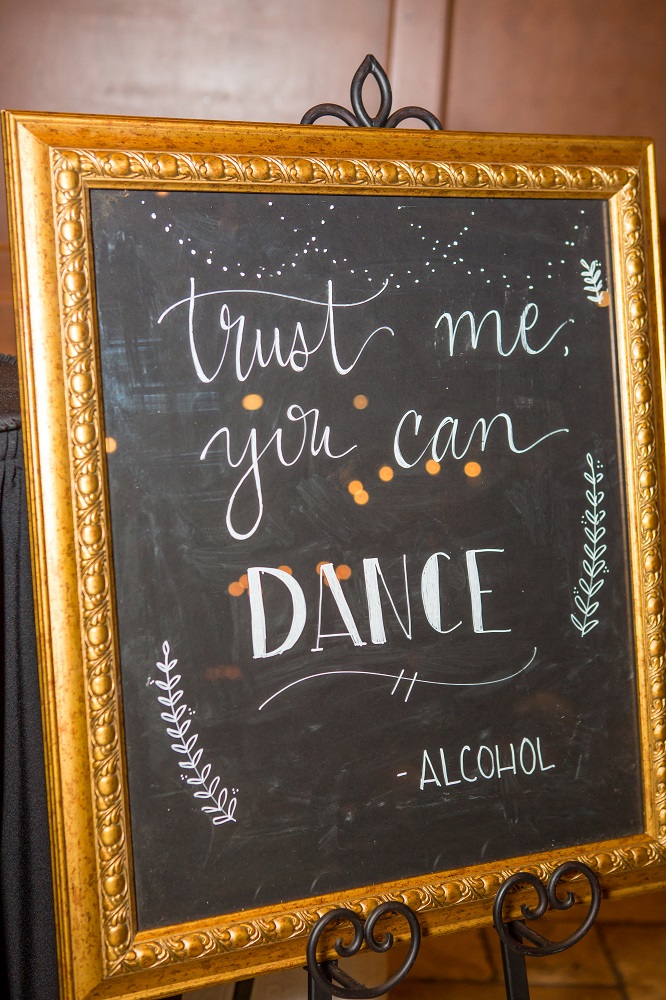 trust me,
you can
DANCE
- ALCOHOL